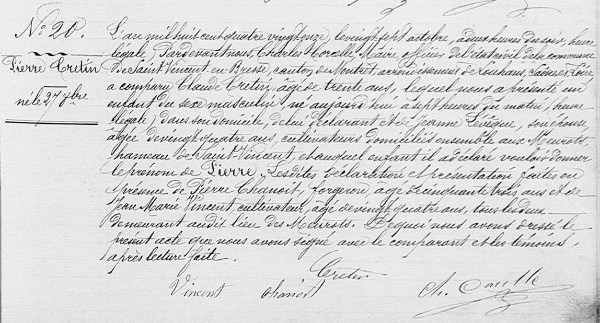 N° 20.
Pierre Cretin
né le 27 8bre
L'an mil huit cent quatre vingt onze, le vingt sept octobre, à onze heures du soir, heure
légale, Pardevant nous, Charles Corcelle, Maire officier de l'état civil de la commune
de Saint Vincent en Bresse, canton de Montret, arrondissement de Louhans, Saône et Loire
a comparu Claude Cretin, âgé de trente ans, lequel nous a présenté un
enfant du sexe masculin, né aujourd'hui à sept heures du matin, heure
légale, dans son domicile, de lui déclarant et de Jeanne Levêque, son épouse,
âgée de vingt quatre ans, cultivateurs domiciliés ensemble aux Meurots,
hameau de Saint Vincent, et auquel enfant il a déclaré vouloir donner
le prénom de Pierre. Lesdites déclaration et présentation faites en
présence de Pierre Chanoit, forgeron, âgé de cinquante trois ans et de
Jean Marie Vincent, cultivateur, âgé de vingt quatre ans, tous les deux
demeurant audit lieu des Meurots. De quoi nous avons dressé le
présent acte que nous avons signé avec le comparant et les témoins,
après lecture faite.
Cretin
Vincent chanoit Ch. Corcelle